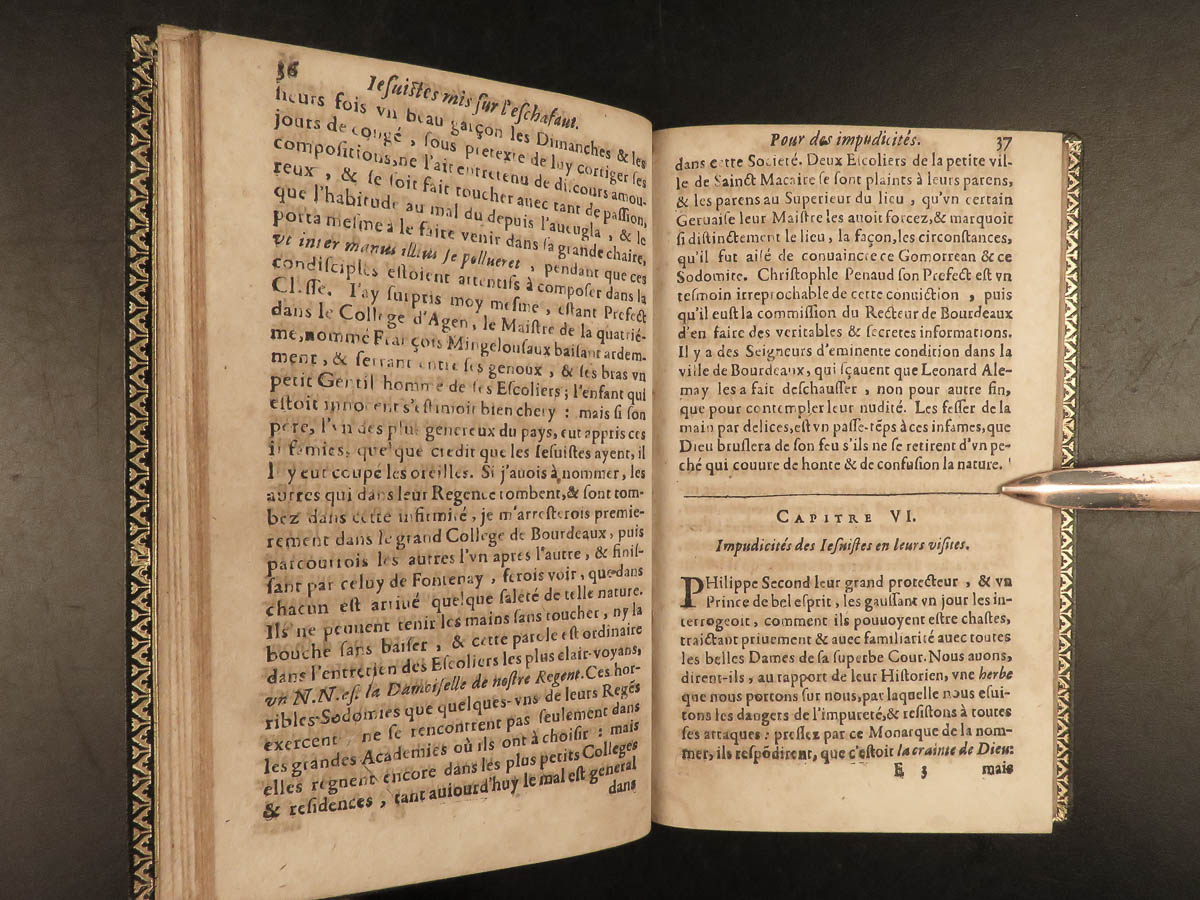 36
Iesuistes mis sur l'eschafaut.
sieurs fois vn beau garçon les Dimanches & les
jours de congé, sous pretexte de luy corriger ses
compositions, ne l'ait entretenu de discours amou-
reux, & se soit fait toucher auec tant de passion,
que l'habitude au mal du depuis l'aueugla, & le
porta mesme à le faire venir dans sa grande chaire,
vt inter manus illius se pollueret, pendant que ces
condisciples estoient attentifs à composer dans la
Classe. I'ay surpris moy mesme, estant Prefect
dans le College d'Agen, le Maistre de la quatrié-
me, nommé François Mingelousaux baisant ardem-
ment, & serrant entre ses genoux, & ses bras vn
petit Gentil homme de ses Escoliers; l'enfant qui
estoit innocent s'estimoit bien chery: mais si son
pere, l'vn des plus genereux du pays, eut appris ces
infamies, quelque credit que les Iesuistes ayent, il
luy eut coupé les oreilles. Si j'auois à nommer, les
autres qui dans leur Regence tombent, & sont tom-
bez dans cette infirmité, je m'arresterois premie-
rement dans le grand College de Bourdeaux, puis
parcourrois les autres l'vn apres l'autre, & finis-
sant par celuy de Fontenay, ferois voir, que dans
chacun est arriué quelque saleté de telle nature.
Ils ne peuuent tenir les mains sans toucher, ny la
bouche sans baiser, & cette parole est ordinaire
dans l'entretien des Escoliers les plus clair-voyans,
vn N.N. est la Damoiselle de nostre Regent. Ces hor-
ribles Sodomies que quelques-vns de leurs Regēs
exercent, ne se rencontrent pas seulement dans
les grandes Academies où ils ont à choisir: mais
elles regnent encore dans les plus petits Colleges
& residences, tant aujourd'huy le mal est general
dans
Pour des impudicités.
37
dans cette Societé. Deux Escoliers de la petite vil-
le de Sainct Macaire se sont plaints à leurs parens,
& les parens au Superieur du lieu, qu'vn certain
Geruaise leur Maistre les auoit forcez, & marquoit
si distinctement le lieu, la façon, les circonstances,
qu'il fut aisé de conuaincre ce Gomorrean & ce
Sodomite. Christophle Penaud son Prefect est vn
tesmoin irreprochable de cette conuiction, puis
qu'il eust la commission du Recteur de Bourdeaux
d'en faire des veritables & secretes informations.
Il y a des Seigneurs d'eminente condition dans la
ville de Bourdeaux, qui sçauent que Leonard Ale-
may les a fait deschausser, non pour autre fin,
que pour contempler leur nudité. Les fesser de la
main par delices, est vn passe-tēps à ces infames, que
Dieu bruslera de son feu s'ils ne se retirent d'vn pe-
ché qui couure de honte & de confusion la nature.
CAPITRE VI.
Impudicités des Iesuistes en leurs visites.
PHilippe Second leur grand protecteur, & vn
Prince de bel esprit, les gaussant vn jour les in-
terrogeoit, comment ils pouuoyent estre chastes,
traictant priuement & auec familiarité auec toutes
les belles Dames de sa superbe Cour. Nous auons,
dirent-ils, au rapport de leur Historien, vne herbe
que nous portons sur nous, par laquelle nous esui-
tons les dangers de l'impureté, & resistons à toutes
ses attaques: pressez par ce Monarque de la nom-
mer, ils respōdirent, que c'estoit la crainte de Dieu:
E 3
mais